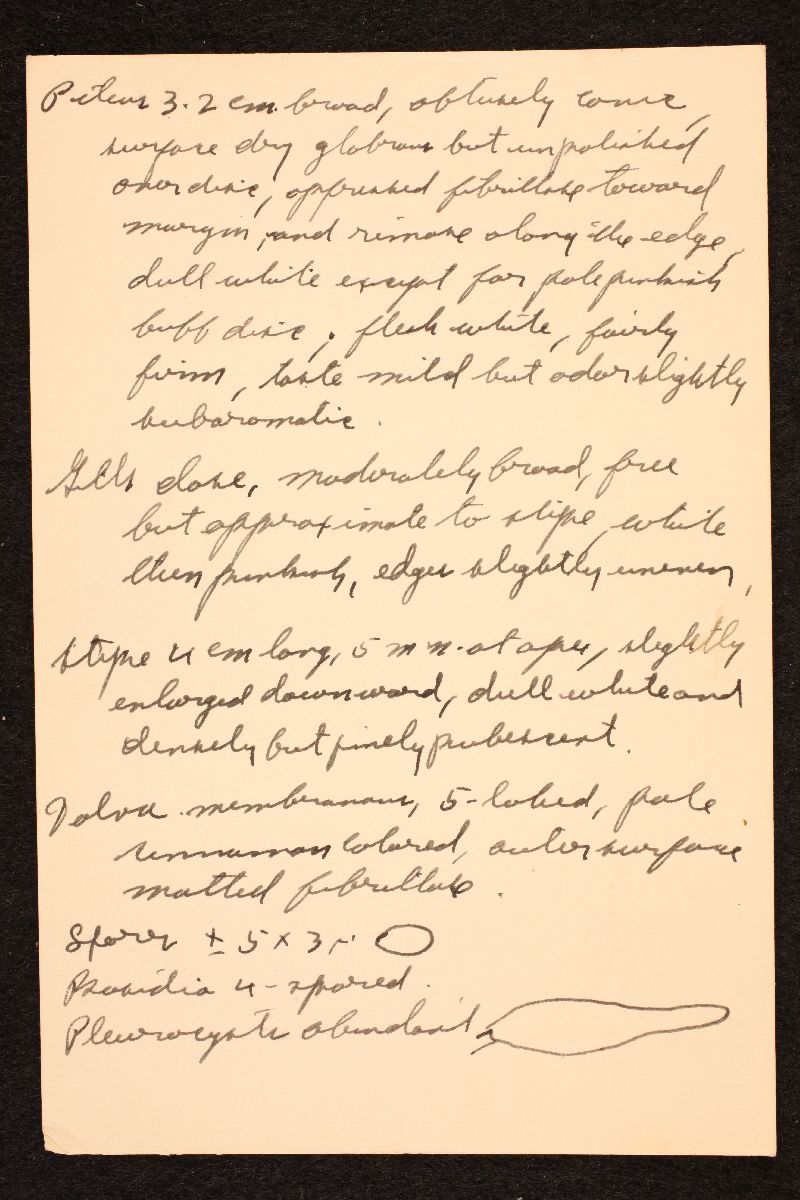 Pileus 3.2 cm. broad, obtusely conic,
surface dry glabrous but unpolished
over disc, appressed fibrillose toward
margin, and rimose along the edge,
dull white except for pale pinkish
buff disc; flesh white, fairly
firm, taste mild but odor slightly
subaromatic.
Gills close, moderately broad, free
but approximate to stipe, white
then pinkish, edges slightly uneven,
Stipe 4 cm long, 5 mm. at apex, slightly
enlarged downward, dull white and
densely but finely pubescent.
Volva membranous, 5-lobed, pale
cinnamon colored, outer surface
matted fibrillose.
Spores ± 5 x 3 μ.
Basidia 4-spored.
Pleurocysts abundant